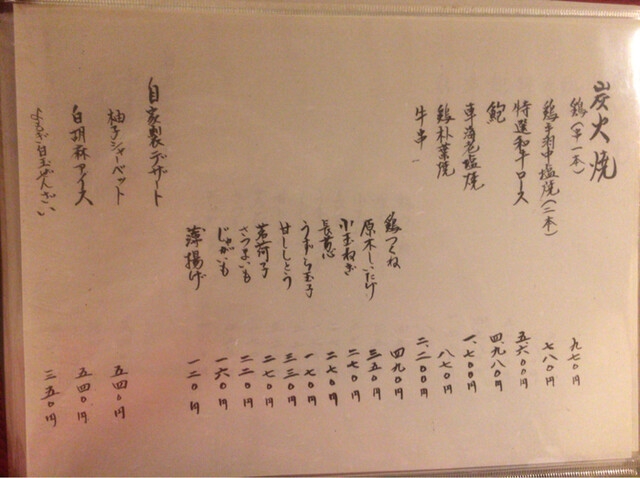 炭火焼
鶏(半一本) 九七〇円
鶏手羽中塩焼(二本) 七八〇円
特選和牛ロース 五、六〇〇円
鮑 四、九八〇円
車海老塩焼 一、七〇〇円
鶏朴葉焼 八七〇円
牛串 二、二〇〇円
鶏つくね 四九〇円
原木しいたけ 三五〇円
小玉ねぎ 二七〇円
長葱 二七〇円
うずら玉子 一七〇円
甘ししとう 三三〇円
茗荷子 二七〇円
さつまいも 二二〇円
じゃがいも 一六〇円
薄揚げ 一二〇円
自家製デザート
柚子シャーベット 五四〇円
白胡麻アイス 五四〇円
よもぎ白玉ぜんざい 三五〇円